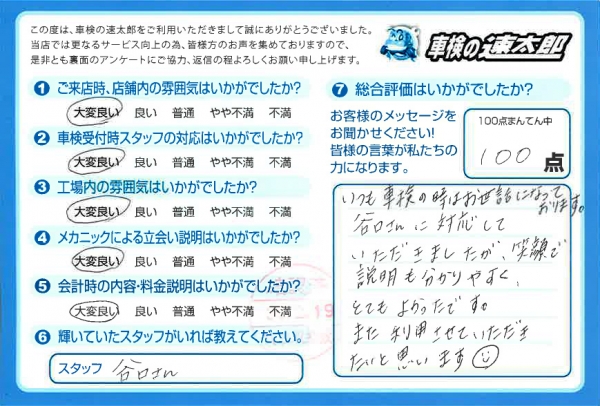 この度は、車検の速太郎をご利用いただきまして誠にありがとうございました。
当店では更なるサービス向上の為、皆様方のお声を集めておりますので、
是非とも裏面のアンケートにご協力、返信の程よろしくお願い申し上げます。
車検の速太郎
1 ご来店時、店舗内の雰囲気はいかがでしたか?
大変良い 良い 普通 やや不満 不満
2 車検受付時スタッフの対応はいかがでしたか?
大変良い 良い 普通 やや不満 不満
3 工場内の雰囲気はいかがでしたか?
大変良い 良い 普通 やや不満 不満
4 メカニックによる立会い説明はいかがでしたか?
大変良い 良い 普通 やや不満 不満
5 会計時の内容・料金説明はいかがでしたか?
大変良い 良い 普通 やや不満 不満
6 輝いていたスタッフがいれば教えてください。
スタッフ 谷口さん
7 総合評価はいかがでしたか?
お客様のメッセージを
お聞かせください!
皆様の言葉が私たちの
力になります。
100点まんてん中
100 点
いつも車検の時はお世話になって
おります。
谷口さんに対応して
いただきましたが、笑顔で
説明も分かりやすく、
とてもよかったです。
また利用させていただき
たいと思います
19